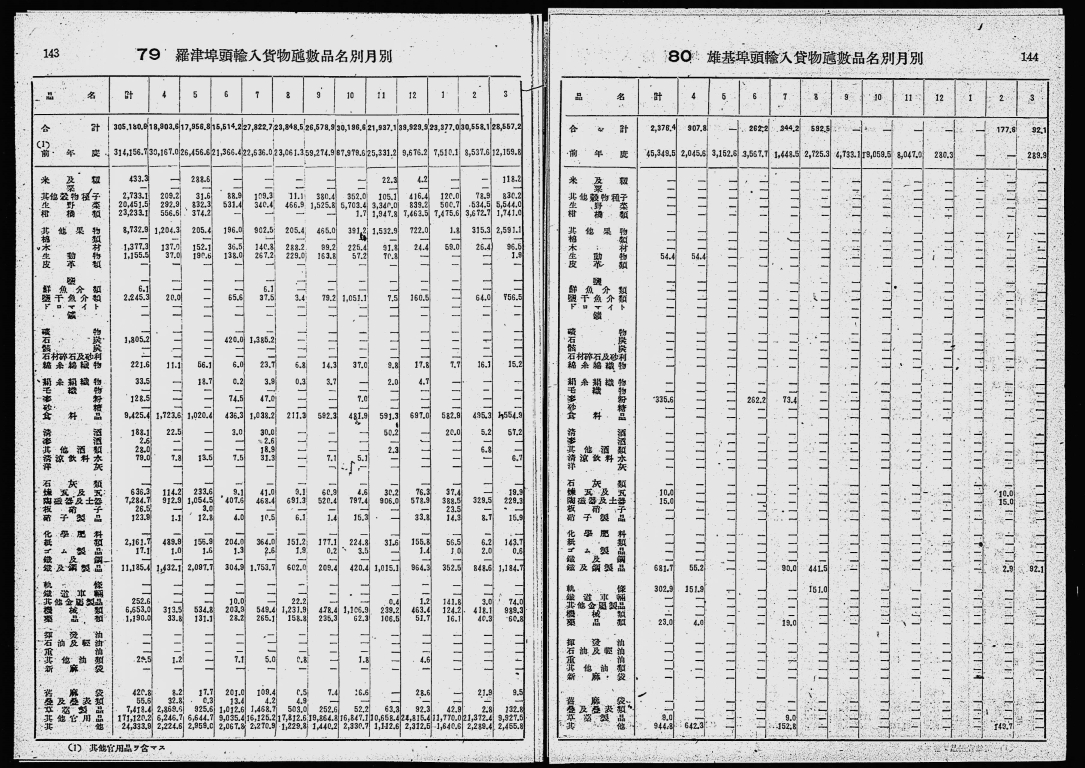 143
79 羅津埠頭輸入貨物瓲數品名別月別
品 名 計 4 5 6 7 8 9 10 11 12 1 2 3
合 計 305,180.0 18,903.6 17,956.8 15,514.2 27,822.7 23,848.5 26,578.9 30,196.6 21,937.1 39,929.9 23,377.0 30,558.1 28,557.2
(1)
前年度 314,156.7 30,167.0 26,456.6 21,366.4 22,636.0 23,061.3 59,274.9 67,979.6 25,331.2 9,676.2 7,510.1 8,537.6 12,159.8
米及籾 433.3 — 288.6 — — — — — 22.3 4.2 — — 118.2
粟
其他穀物種子 2,733.1 209.2 31.6 88.9 109.3 11.1 380.4 352.0 105.1 416.4 120.0 78.9 830.2
生野菜 20,451.5 292.9 832.3 531.4 340.4 466.9 1,525.8 5,703.4 3,340.0 839.2 500.7 534.5 5,544.0
柑橘類 23,233.1 556.6 374.2 — — — — 1.7 1,947.8 7,463.5 7,475.6 3,672.7 1,741.0
其他果物 8,732.9 1,204.3 205.4 196.0 902.5 205.4 465.0 391.2 1,532.9 722.0 1.8 315.3 2,591.1
棉類
木材 1,377.3 137.0 152.1 36.5 140.8 288.2 99.2 225.4 91.8 24.4 59.0 26.4 96.5
生動物 1,155.5 37.0 190.6 138.0 267.2 229.0 163.8 57.2 70.8 — — — 1.9
皮革類
鹽
鮮魚介類 6.1 — — — 6.1
鹽干魚介類 2,245.3 20.0 — 65.6 37.5 3.4 79.2 1,051.1 7.5 160.5 — 64.0 756.5
ドロマイト
鑛
礦物
石炭 1,805.2 — — 420.0 1,385.2
骸炭
石材碎石及砂利
綿糸綿織物 221.6 11.1 56.1 6.0 23.7 6.8 14.3 37.0 9.8 17.8 7.7 16.1 15.2
絹糸絹織物 33.5 — 18.7 0.2 3.9 0.3 3.7 — 2.0 4.7
毛織物
麥粉 128.5 — — 74.5 47.0 — — 7.0
砂糖
食料品 9,425.4 1,723.6 1,020.4 436.3 1,038.2 211.3 592.3 481.9 591.3 697.0 582.9 495.3 1,554.9
清酒 188.1 22.5 — 3.0 30.0 — — — 50.2 — 20.0 5.2 57.2
麥酒 2.6 — — — 2.6
其他酒類 28.0 — — — 18.9 — — — 2.3 — — 6.8
清涼飲料水 79.0 7.8 13.5 7.5 31.3 — 7.1 5.1 — — — — 6.7
洋灰
石灰類
煉瓦及瓦 636.3 114.2 233.6 9.1 41.0 9.1 60.9 4.6 30.2 76.3 37.4 — 19.9
陶磁器及土器 7,284.7 912.9 1,054.5 407.6 468.4 691.3 520.4 797.4 906.0 578.9 388.5 329.5 229.3
板硝子 26.5 — 3.0 — — — — — — — 23.5
硝子製品 123.9 1.1 12.8 4.0 10.5 6.1 1.4 15.3 — 33.8 14.3 8.7 15.9
化學肥料
紙類 2,161.7 489.9 156.9 204.0 364.0 151.2 177.1 224.8 31.6 155.8 56.5 6.2 143.7
ゴム製品 17.1 1.0 1.6 1.3 2.6 1.9 0.2 3.5 — 1.4 1.0 2.0 0.6
鐵及鋼
鐵及鋼製品 11,185.4 1,432.1 2,097.7 304.9 1,753.7 602.0 209.4 420.4 1,015.1 964.3 352.5 848.6 1,184.7
軌條
鐵道車輛
其他金屬製品 252.6 — — 10.0 — 22.2 — — 0.4 1.2 141.8 3.0 74.0
機械類 6,653.0 313.5 534.8 203.9 549.4 1,231.9 478.4 1,106.9 239.2 463.4 124.2 418.1 989.3
藥品類 1,190.0 33.8 131.1 28.2 265.1 158.8 235.3 62.3 106.5 51.7 16.1 40.3 60.8
揮發油
石油及輕油
重油
其他油類 20.5 1.2 — 7.1 5.0 0.8 — 1.8 — 4.6
新麻袋
舊麻袋 420.8 8.2 17.7 201.0 109.4 0.5 7.4 16.6 — 28.6 — 21.9 9.5
疊及疊表類 55.6 32.8 0.3 13.4 4.2 4.9
草藁製品 7,418.4 2,869.6 925.6 1,012.6 1,468.7 503.0 252.6 52.2 63.3 92.3 42.9 2.8 132.8
其他官用品 171,120.2 6,246.7 6,644.7 9,035.4 16,125.2 17,812.6 19,864.8 16,847.1 10,658.4 24,815.4 11,770.0 21,372.4 9,927.5
其他 24,333.9 2,224.6 2,959.0 2,067.8 2,270.9 1,229.8 1,440.2 2,330.7 1,112.6 2,312.5 1,640.6 2,289.4 2,455.8
(1) 其他官用品ヲ含マス
80 雄基埠頭輸入貨物瓲數品名別月別
144
品 名 計 4 5 6 7 8 9 10 11 12 1 2 3
合 計 2,376.4 907.8 — 262.2 344.2 592.5 — — — — — 177.6 92.1
前年度 45,349.5 2,045.6 3,152.6 3,567.7 1,448.5 2,725.3 4,733.1 19,059.5 8,047.0 280.3 — — 289.9
米及籾
粟
其他穀物種子
生野菜
柑橘類
其他果物
棉類
木材
生動物 54.4 54.4
皮革類
鹽
鮮魚介類
鹽干魚介類
ドロマイト
鑛
礦物
石炭
骸炭
石材碎石及砂利
綿糸綿織物
絹糸絹織物
毛織物
麥粉 335.6 — — 262.2 73.4
砂糖
食料品
清酒
麥酒
其他酒類
清涼飲料水
洋灰
石灰類
煉瓦及瓦 10.0 — — — — — — — — — — 10.0
陶磁器及土器 15.0 — — — — — — — — — — 15.0
板硝子
硝子製品
化學肥料
紙類
ゴム製品
鐵及鋼
鐵及鋼製品 681.7 55.2 — — 90.0 441.5 — — — — — 2.9 92.1
軌條 302.9 151.9 — — — 151.0
鐵道車輛
其他金屬製品
機械類
藥品類 23.0 4.0 — — 19.0
揮發油
石油及輕油
重油
其他油類
新麻袋
舊麻袋
疊及疊表類
草藁製品 9.0 — — — 9.0
其他 944.8 642.3 — — 152.8 — — — — — — 149.7